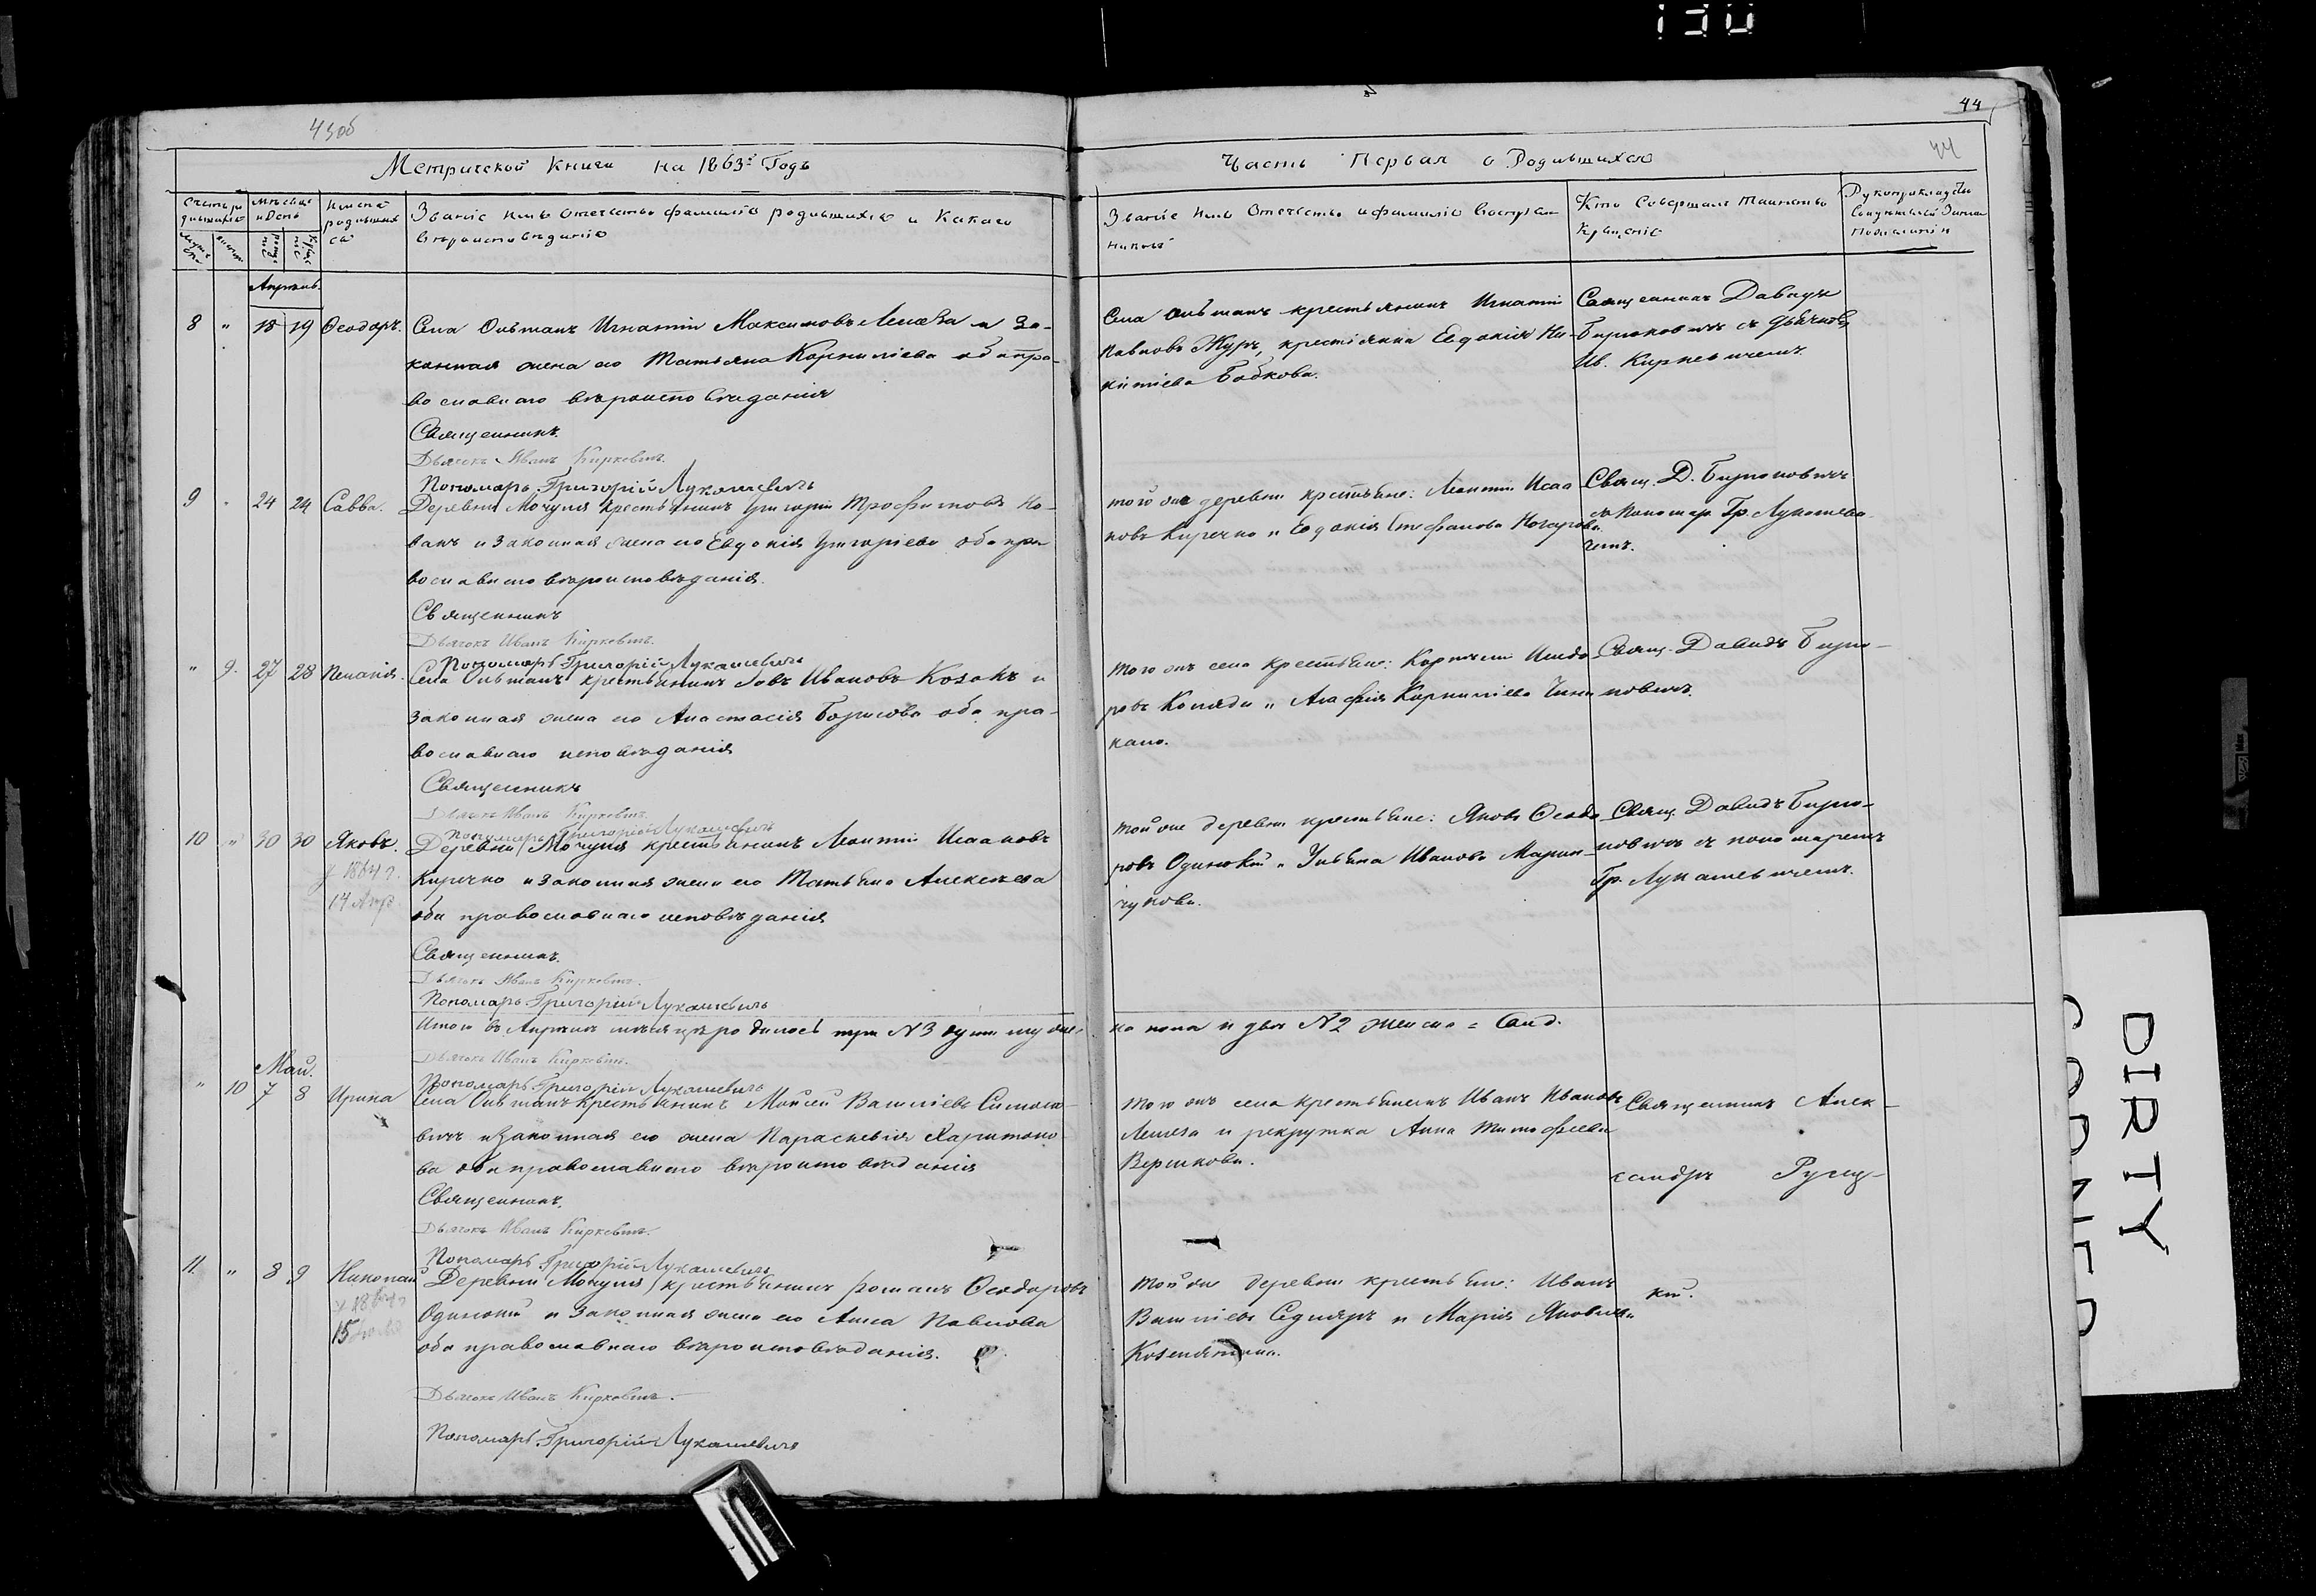 130
43об
44
44
Метрической Книги на 1863й Годъ
Часть Первая о Родившихся
Имена родившихся
Званіе имя отечество фамилія родившихся и Какаго вѣроисповѣданія
Званіе Имя Отечество и фамилія Воспріемниковъ
Кто Совершалъ Таинство Крещенія
Апрѣль
8 " 18 19 Ѳеодоръ.
Села Ольманъ Игнатій Максимовъ Лемеза и За-
конная жена его Татьяна Корниліева оба пра-
вославнаго вѣроисповѣданія
Священникъ.
Дьячокъ Иванъ Киркевичъ.
Пономарь Григорій Лукашевичъ
Села Ольманъ крестьянинъ Игнатій
Павловъ Журъ, крестіянка Евдокія Ни-
китіева Бобкова.
Священникъ Давидъ
Бирюковичъ съ Дьячкомъ
Ив. Киркевичемъ.
9 " 24 24 Савва.
Деревни Мочуля крестьянинъ Григорій Трофимовъ Но-
ванъ и законная жена его Евдокія Григоріева оба пра
вославнаго вѣроисповѣданія.
Священникъ
Дьячокъ Иванъ Киркевичъ.
Пономарь Григорій Лукашевичъ
той же деревни крестьяне: Леонтій Исаа
ковъ Киречко и Евдокія Стефанова
Свящ. Д. Бирюковичъ
съ Пономар. Гр. Лукашеви
чемъ.
" 9. 27 28 Пелагія.
Села Ольманъ крестьянинъ Іовъ Ивановъ Козакъ и
законная жена его Анастасія Борисова оба пра-
вославнаго исповѣданія
Священникъ
Дьячокъ Иванъ Киркевичъ.
Пономарь Григорій Лукашевичъ
того жъ села крестьяне: Корнилій Исидо
ровъ Коляда и Агафія Корниліева
Свящ. Давидъ Бирю-
ковичъ.
10 " 30 30 Яковъ.
14 Апр.
Деревни Мочуля крестьянинъ Леонтій Исааковъ
Киречко и законная жена его Татьяна Алексѣева
оба православнаго исповѣданія
Священникъ.
Дьячокъ Иванъ Киркевичъ.
Пономарь Григорій Лукашевичъ
той же деревни крестьяне: Яковъ Ѳеодо
ровъ Одинокій и Ульяна Иванова Марин-
чукова.
Свящ. Давидъ Бирю-
ковичъ съ пономаремъ
Гр. Лукашевичемъ.
Итого въ Апрѣлѣ мѣсяцѣ родилось три N3 души мужес-
ка пола и двѣ N2 женска
Дьячокъ Иванъ Киркевичъ.
Пономарь Григорій Лукашевичъ
Май.
" 10 7 8 Ирина
Села Ольманъ крестьянинъ Мойсей Василіевъ Симоно-
вичъ и законная его жена Параскевія Харитоно-
ва оба православнаго вѣроисповѣданія
Священникъ.
Дьячокъ Иванъ Киркевичъ.
Пономарь Григорій Лукашевичъ
того жъ села крестьянинъ Иванъ Ивановъ
Лемеза и рекрутка Анна Тимофѣева
Вершкова.
Священникъ Алек-
сандръ Русец-
кій.
11. " 8 9 Николай
15
Деревни Мочуля крестьянинъ Романъ Ѳеодоровъ
Одинокій и законная жена его Анна Павлова
оба православнаго вѣроисповѣданія.
Дьячокъ Иванъ Киркевичъ.
Пономарь Григорій Лукашевичъ
той же деревни крестьяне: Иванъ
Василіевъ Седляръ и Марія Яковлева
DIRTY
CORNER